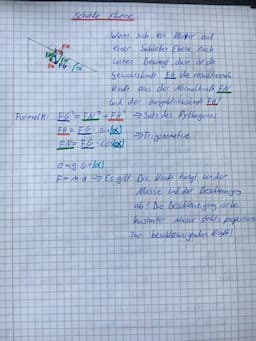 Schiefe Ebene
Wenn sich ein Körper auf
einer Schiefen Ebene nach
unten Bewegt, dann ist die
Gewichtskraft FG die resultierende
Kraft aus der Normalkraft FN
und der Hangabtriebskraft FH!
FH
FN
FG
α
Formeln: FG² = FN² + FH² → Satz des Pythagoras
FH = FG · sin(α)
FN = FG · cos(α)
→ Trigonometrie
a = g · sin(α)
F = m · a → Es gilt: Die Kraft hängt von der
Masse und der Beschleunigung
ab! Die Beschleunigung ist bei
konstanter Masse stets proportional
zur beschleunigenden Kraft!